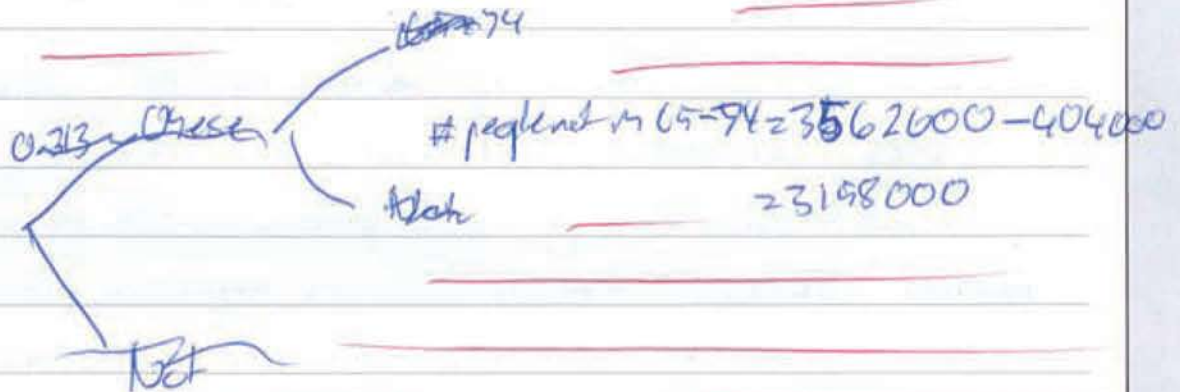 74
0.313 Obese # people not in 65-74 = 3562000 - 404000
= 3158000
Not